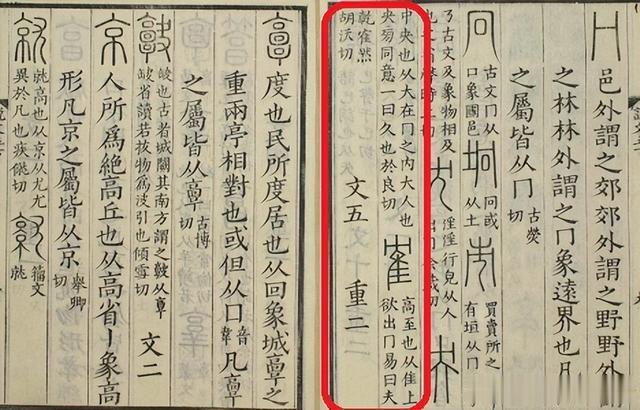 冂 邑外謂之郊郊外謂之野野外
之林林外謂之冂象遠界也凡
之屬皆从冂 古熒切
冋 古文冂从
口象國邑
坰 冋或
从土
市 買賣所之
有垣从冂
乁古文及象物相及
省聲時止切
冘 淫淫行皃从人
出冂余箴切
央
中央也从大在冂之内大人也
央㫄同意一曰久也於良切
隺 高至也从隹上
欲出冂易曰夫
乾隺然
胡沃切
文五 重二
𩫖 度也民所度居也从回象城𩫖之
重兩亭相對也或但从口音韋凡𩫖
之屬皆从𩫖 古博切
缺也古者城闕其南方謂之𡙇从𩫖
缺省讀若拔物爲決引也傾雪切
文二
京 人所爲絶高丘也从高省丨象高
形凡京之屬皆从京 舉卿切
就 就高也从京从尤尤
異於凡也疾僦切
籒文
就